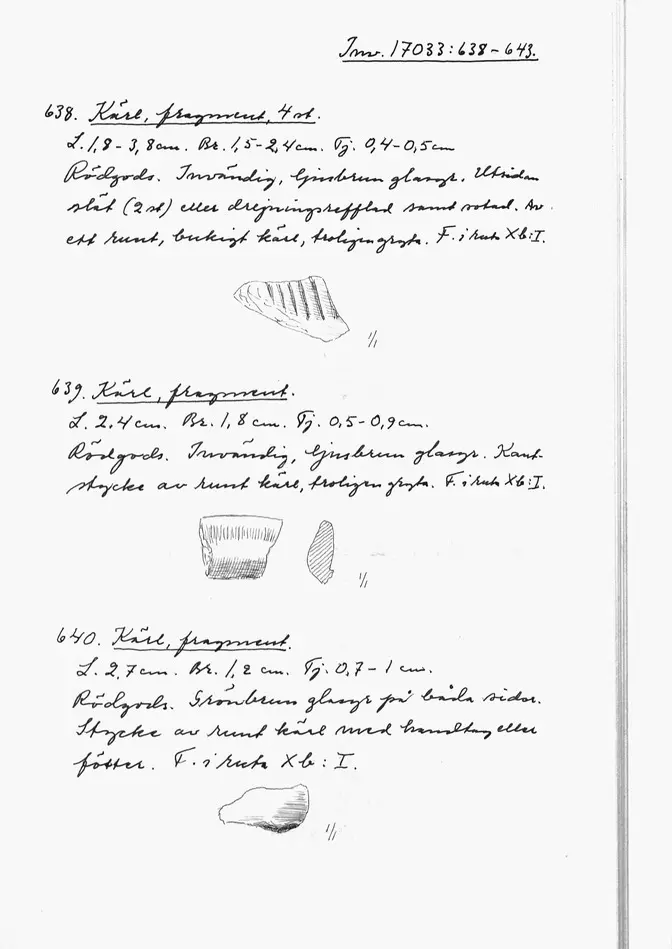 Inv. 17033:638-643.
638. Kärl, fragment, 4 st.
L. 1,8-3,8 cm. Br. 1,5-2,4 cm. Tj. 0,4-0,5 cm
Rödgods. Invändig, ljusbrun glasyr. Utsidan
slät (2 st) eller drejningsrefflad samt sotad. Av
ett runt, bukigt kärl, troligen gryta. F. i ruta Xb:I.
1/1
639. Kärl, fragment.
L. 2,4 cm. Br. 1,8 cm. Tj. 0,5-0,9 cm.
Rödgods. Invändig, ljusbrun glasyr. Kant-
stycke av runt kärl, troligen gryta. F. i ruta Xb:I.
1/1
640. Kärl, fragment.
L. 2,7 cm. Br. 1,2 cm. Tj. 0,7-1 cm.
Rödgods. Grönbrun glasyr på båda sidor.
Stycke av runt kärl med handtag eller
fötter. F. i ruta Xb: I.
1/1